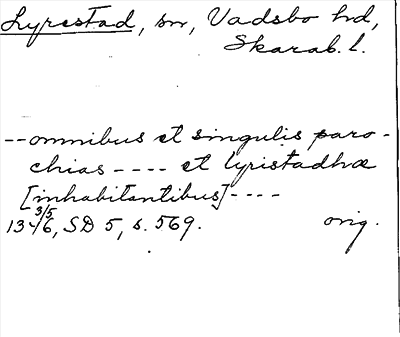 Lyrestad, sn, Vadsbo hd,
Skarab. l.
-- omnibus et singulis paro-
chias ---- et lyristadhæ
[inhabitantibus] ----
13 3/5 46, SD 5, s. 569. orig.